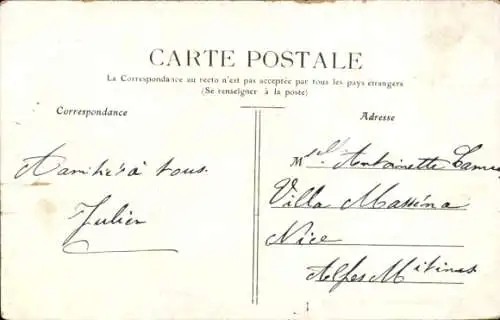 CARTE POSTALE
La Correspondance au recto n'est pas acceptée par tous les pays étrangers
(Se renseigner à la poste)
Correspondance
Adresse
à tous
Julien
Mselle Antoinette
Villa Masséna
Nice
Alpes Mtimes